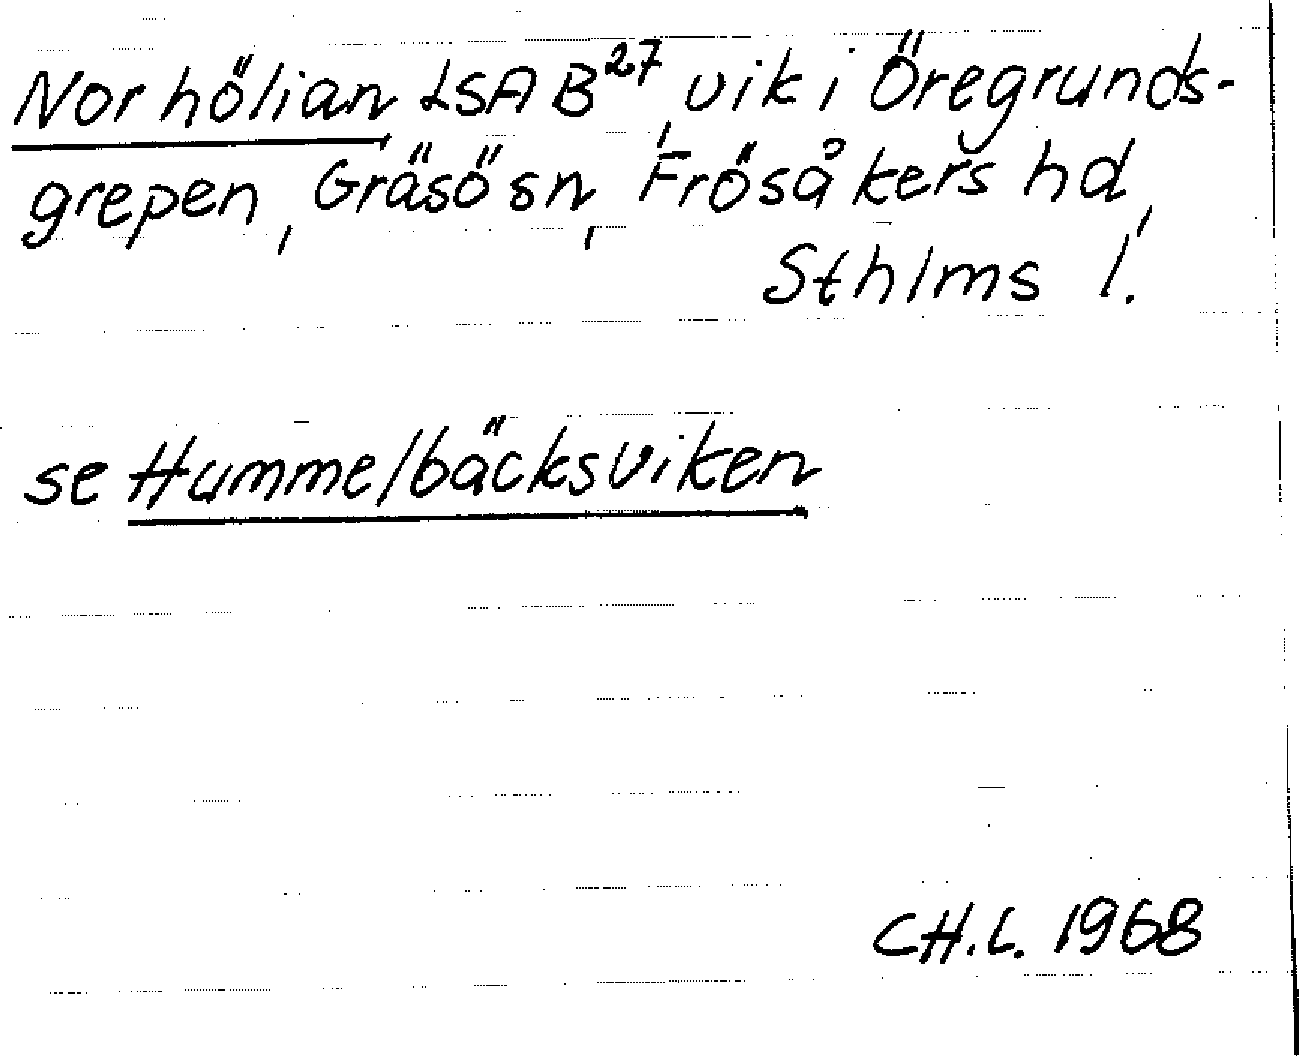 Norhölian LSA B27, vik i Öregrunds-
grepen, Gräsö sn, Frösåkers hd,
Sthlms l.
se Hummelbäcksviken
CH.L. 1968